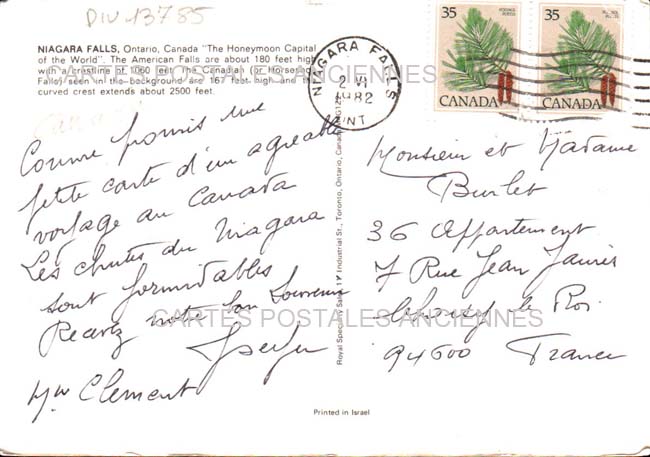 DIV 13785
NIAGARA FALLS, Ontario, Canada "The Honeymoon Capital
of the World". The American Falls are about 180 feet high
with a crestline of 1060 feet. The Canadian (or Horseshoe
Falls) seen in the background are 167 feet high and the
curved crest extends about 2500 feet.
Canada
Comme promis une
petite carte d'un agréable
voyage au Canada
Les chutes du Niagara
sont formidables
Recevez notre bon Souvenir
Mr Clement
NIAGARA FALLS
2 VI
1982
ONT
35
CANADA
35
CANADA
Royal Specialty Sales, Industrial St., Toronto, Ontario, Canada
Monsieur et Madame
Burlet
36 Appartement
7 Rue Jean Jaurès
le Roi
94600 France
Printed in Israel
CARTES POSTALES ANCIENNES
CARTES POSTALES ANCIENNES